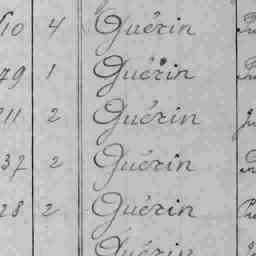 10 4 Guérin
79 1 Guérin
211 2 Guérin
37 2 Guérin
28 2 Guérin
Guérin